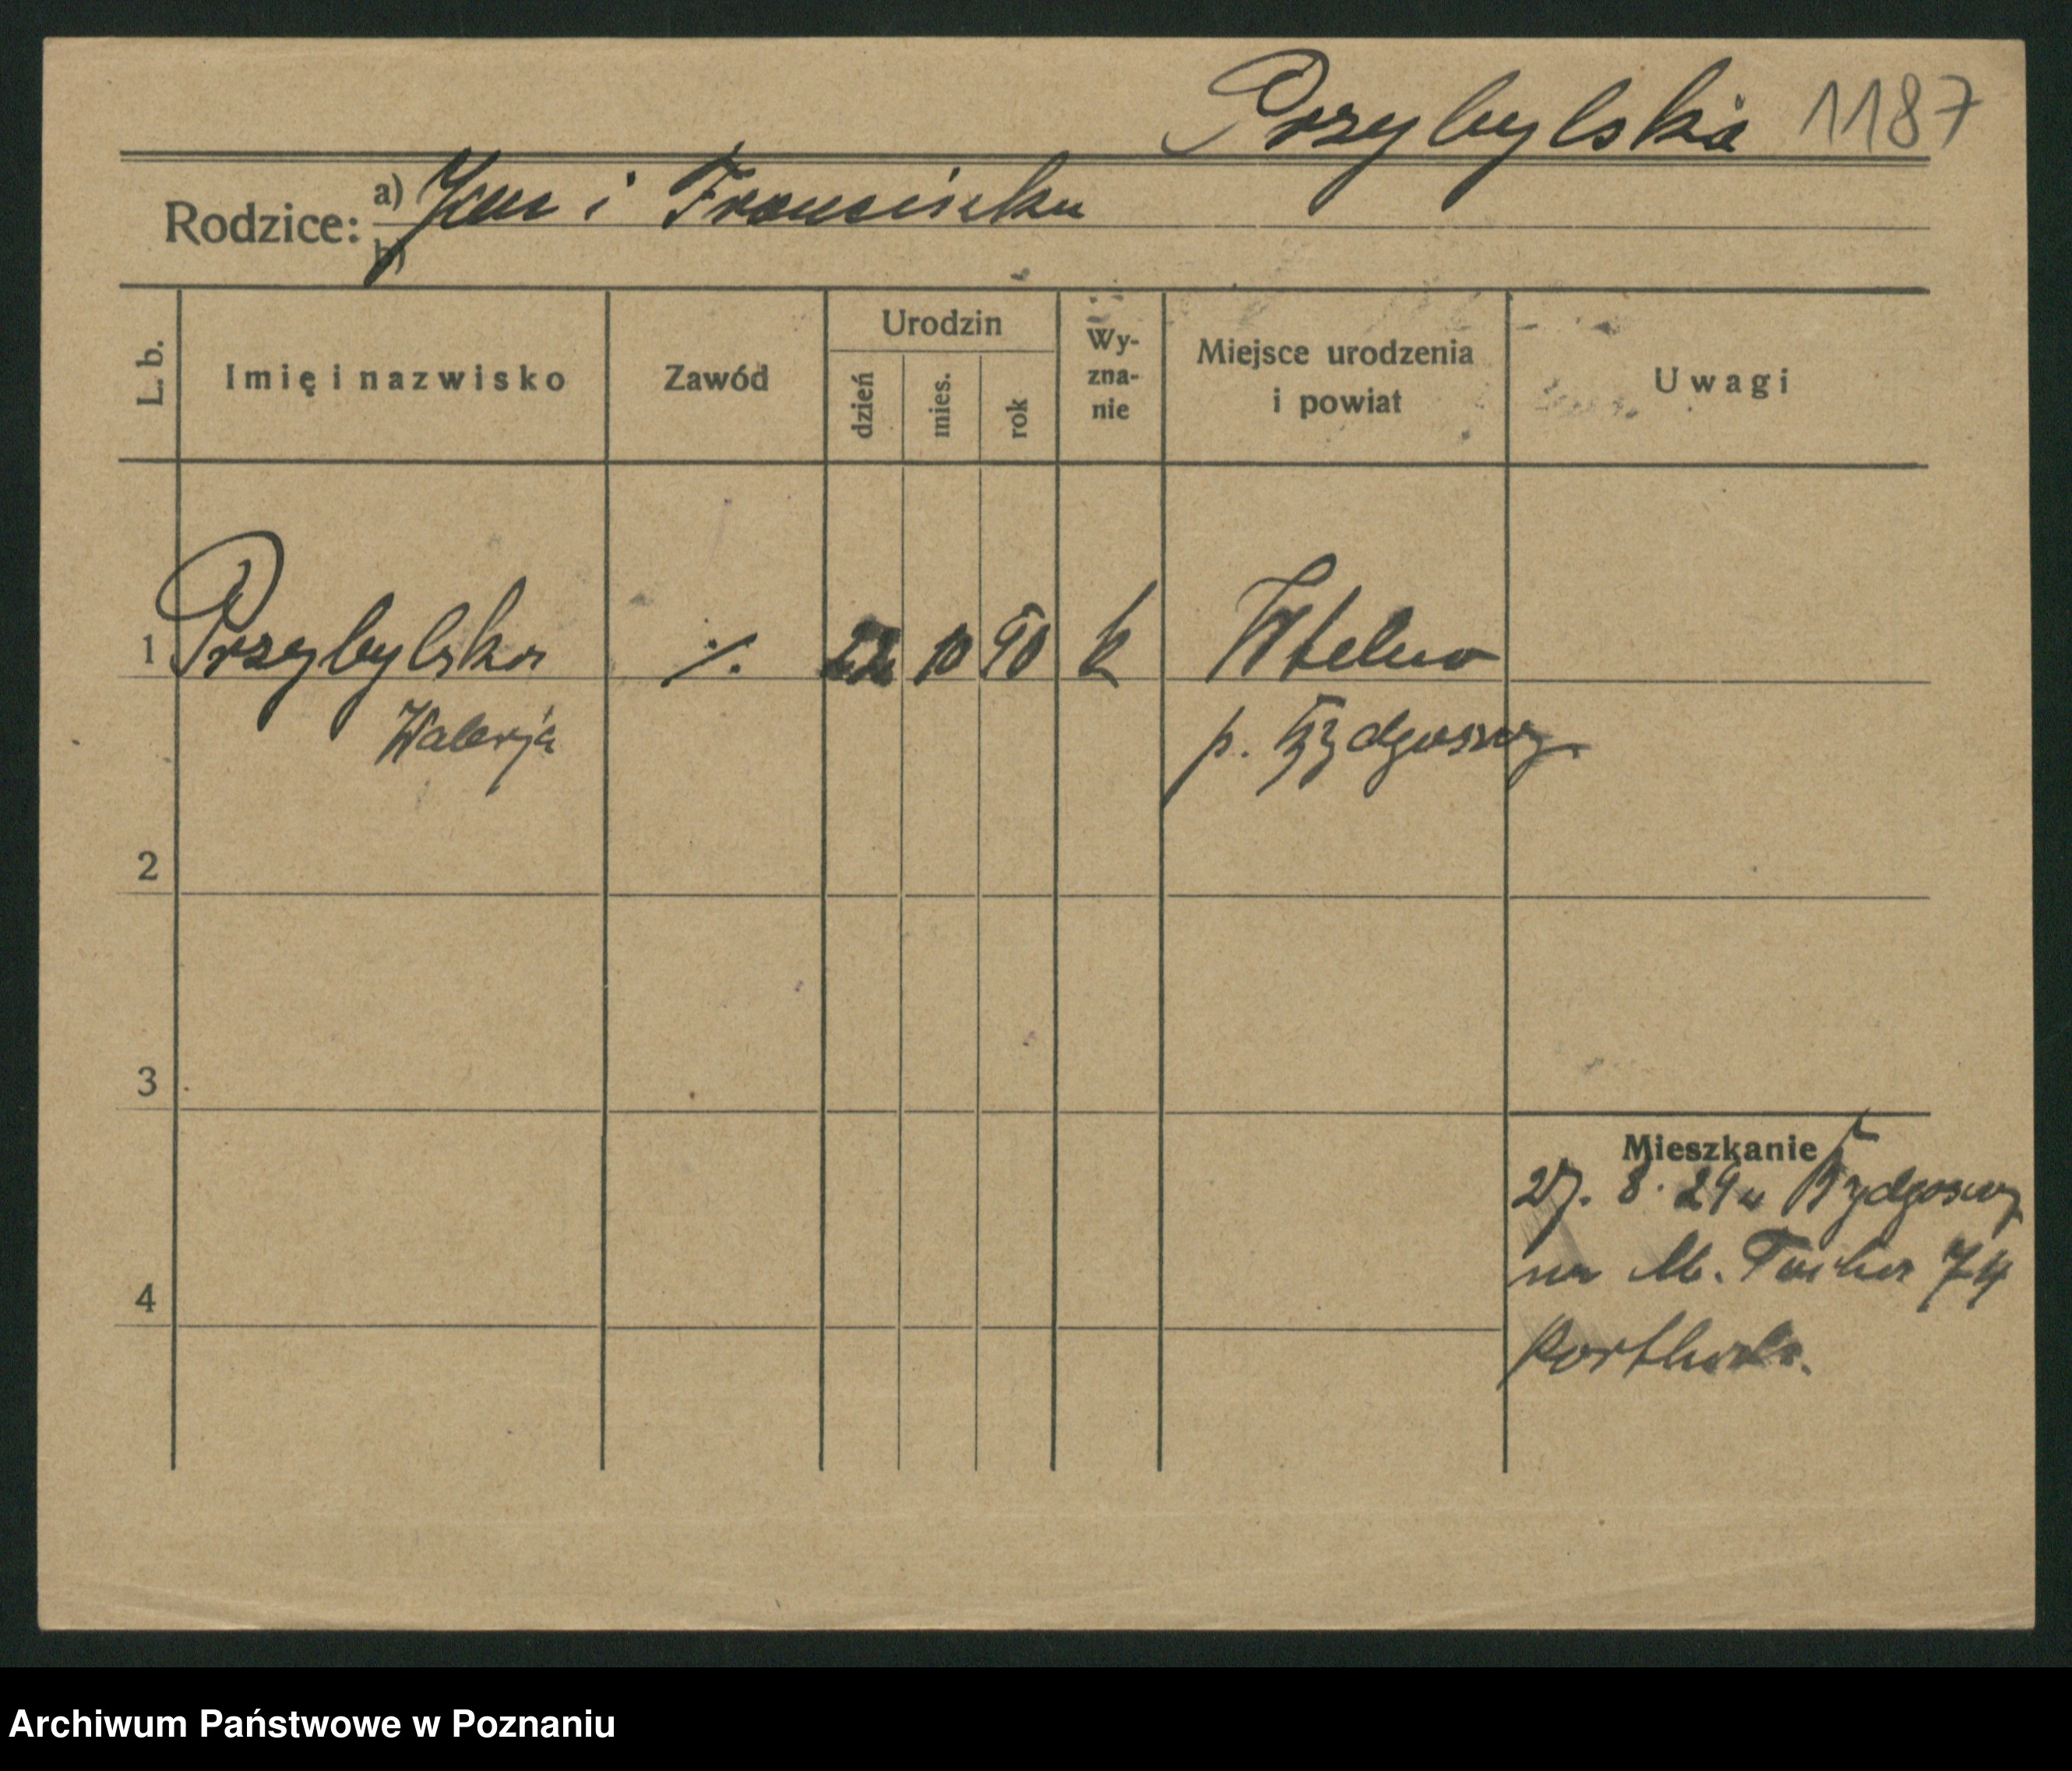 Przybylska 1187
Rodzice: a) Jan i Franciszka
b)
L. b. Imię i nazwisko Zawód Urodzin dzień mies. rok Wy-zna-nie Miejsce urodzenia i powiat Uwagi
1 Przybylska ·/. 22 10 90 k Wtelno
Walerja p. Bydgoszcz
2
3
Mieszkanie
27. 8. 29 Bydgoszcz
na M. 74
4